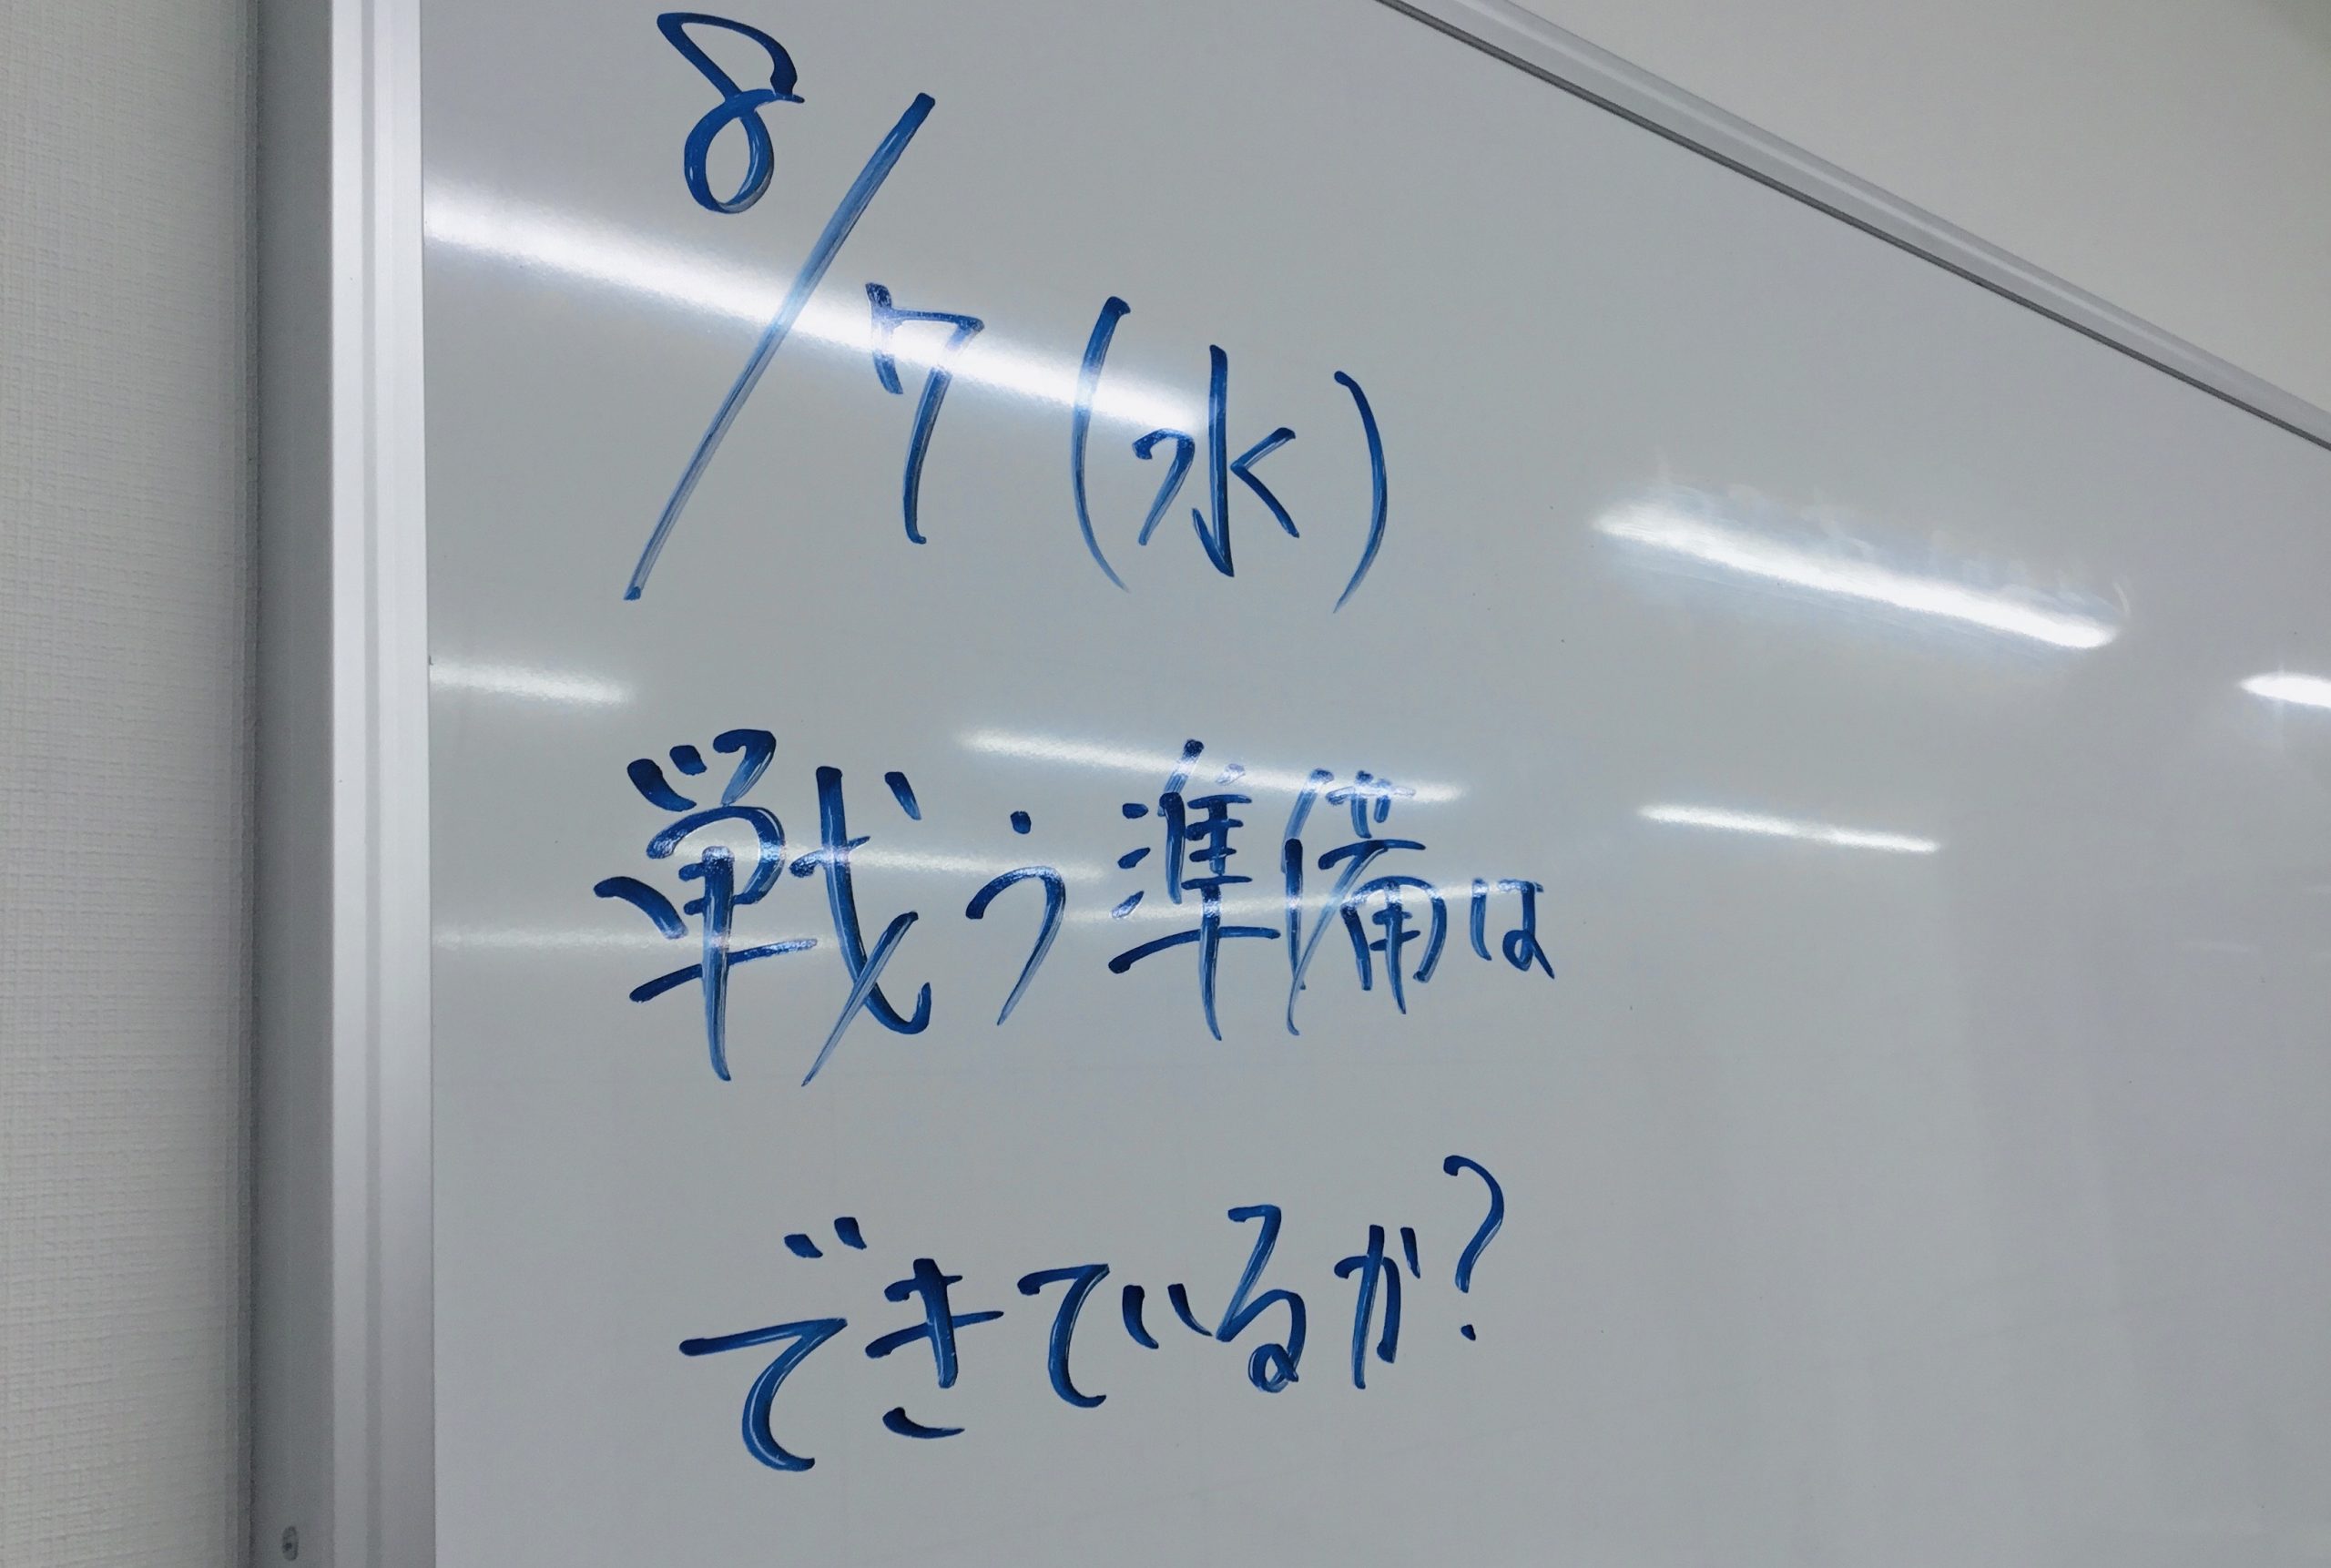 8/7(水)
戦う準備は
できているか?